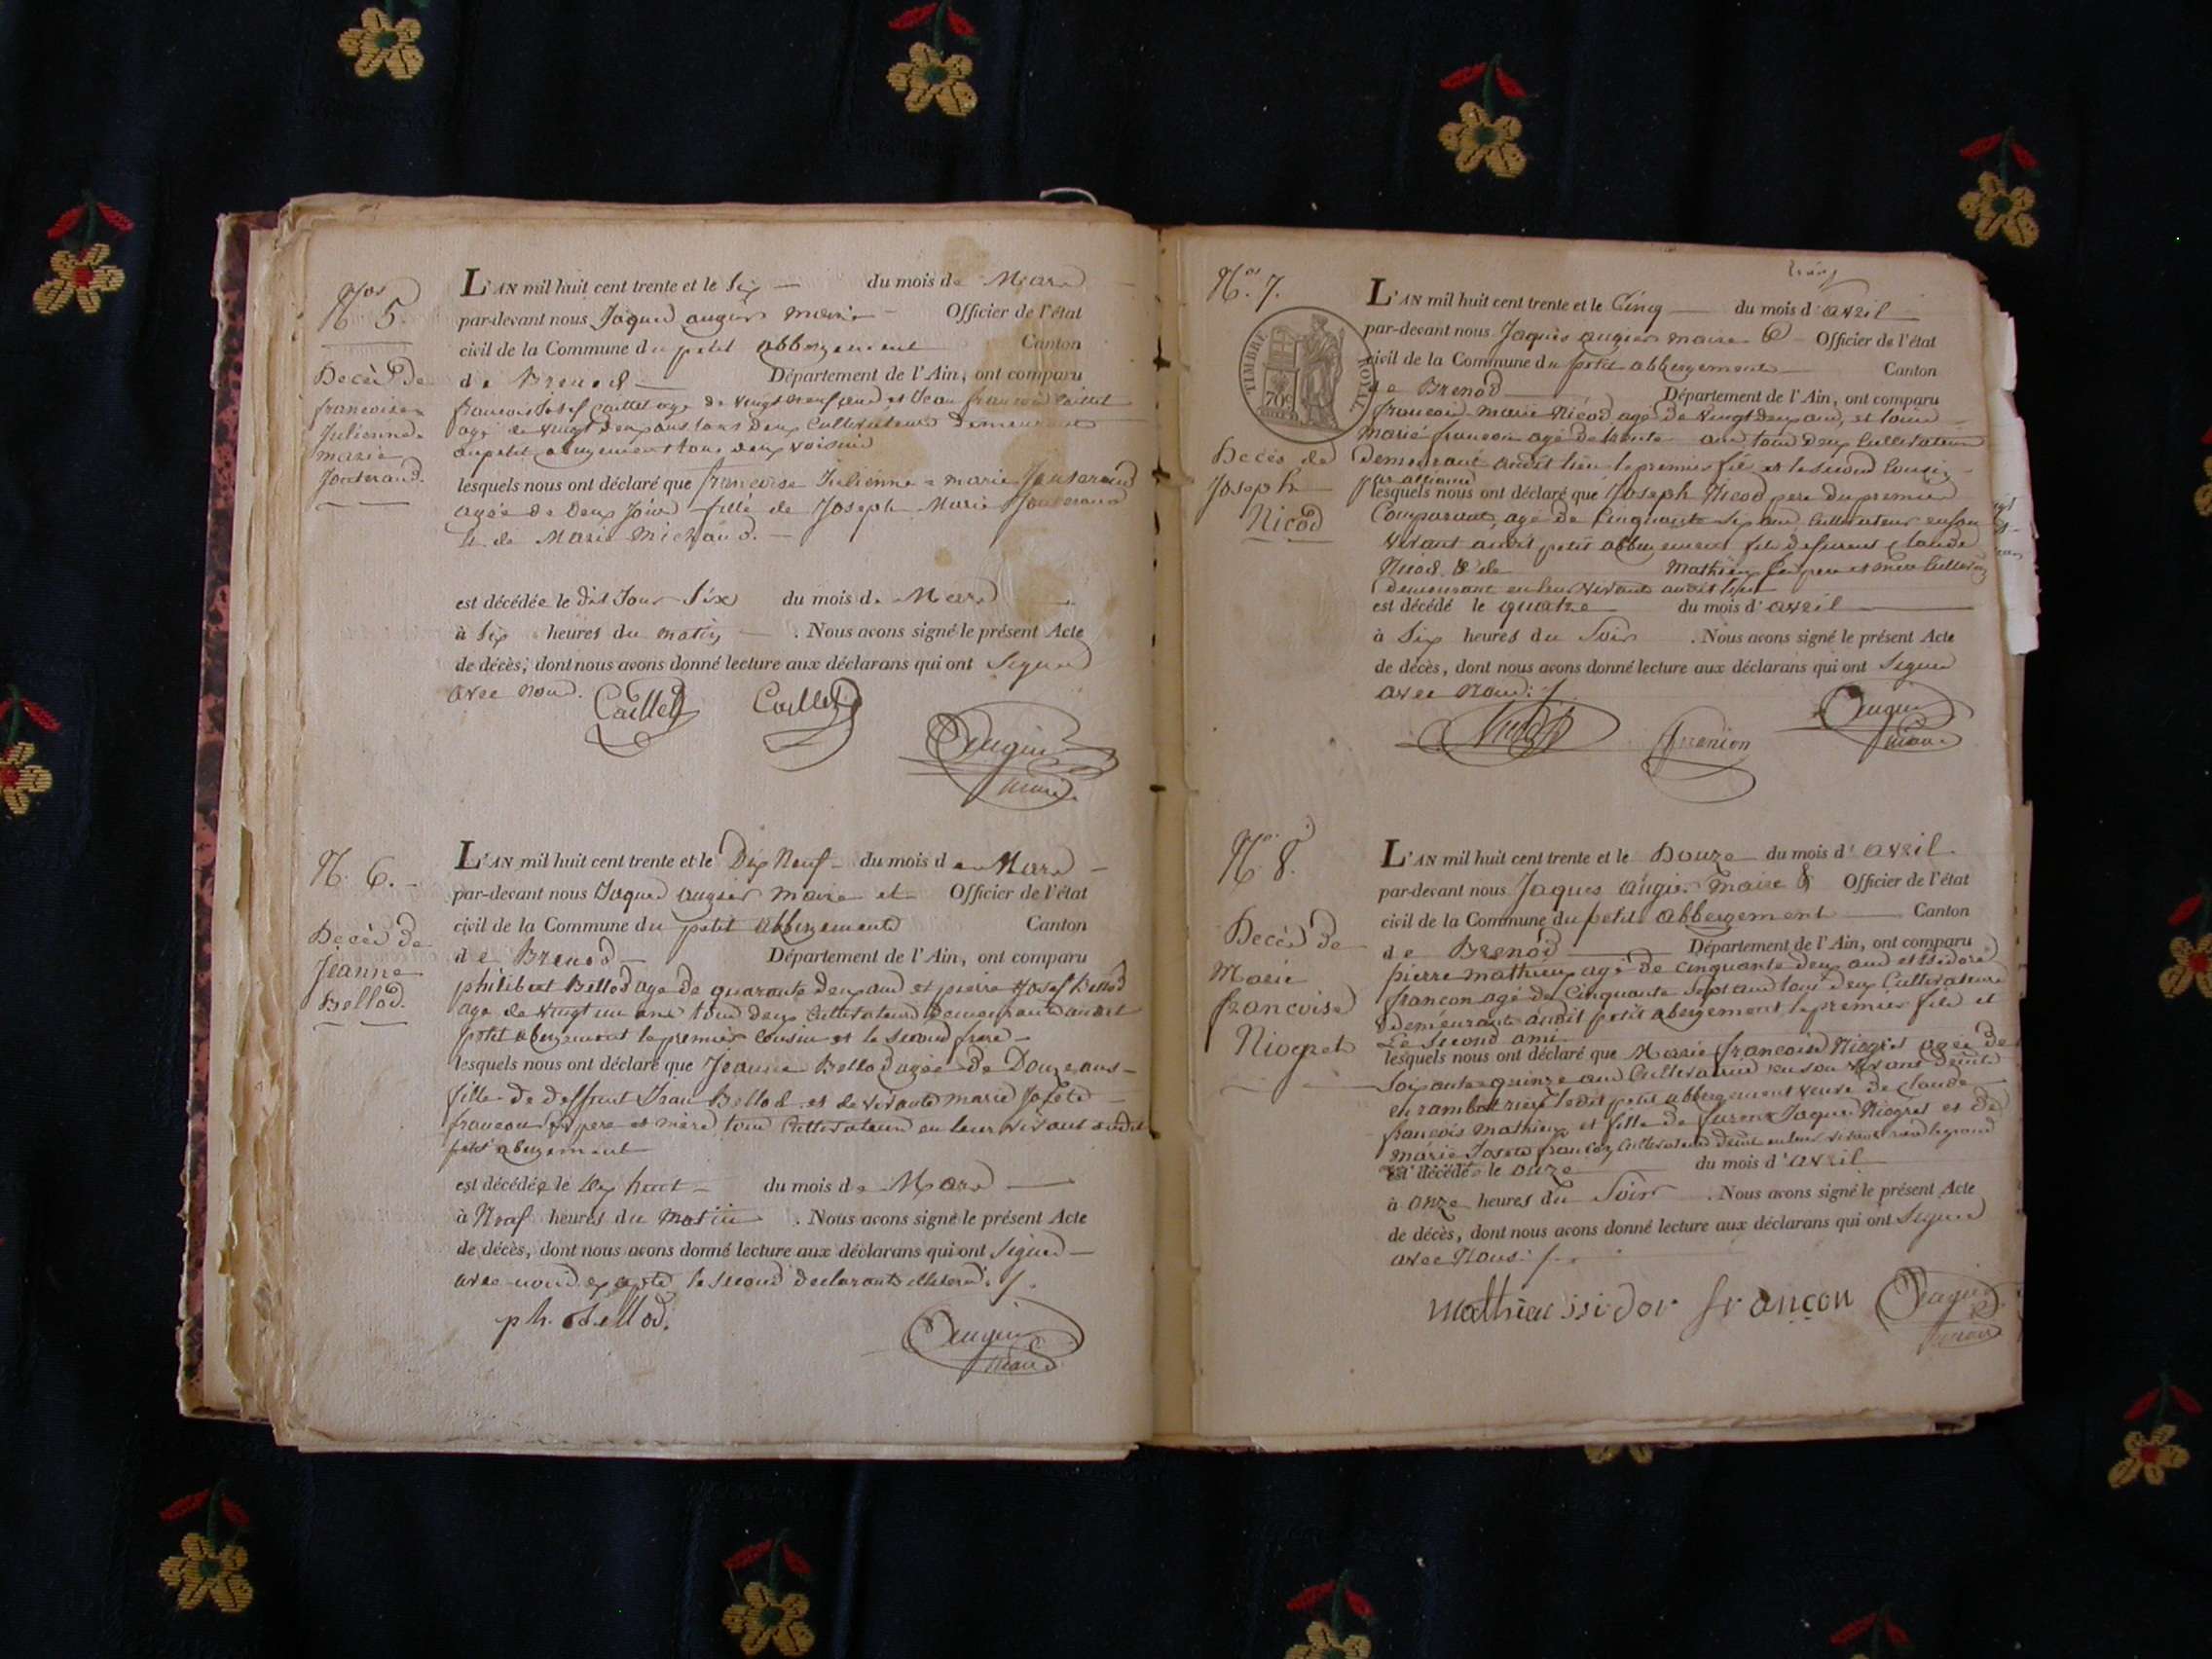 Nos 5.
Decès de
francoise
Julienne
marie
Jonteraud.
L'AN mil huit cent trente et le Six du mois de Mars
par-devant nous Jaques augier maire Officier de l'état
civil de la Commune du petit abbergement Canton
de Brenod Département de l'Ain, ont comparu
francois Josef Caillet age de vingt neuf ans et Jean francois Caillet
agé de vingt deux ans tous deux Cultivateurs demeurant
au petit abergement tous deux voisins
lesquels nous ont déclaré que francoise Julienne marie
agée de Deux Jours fille de Joseph Marie
et de Marie Michaud.
est décédée le dit Jour Six du mois de Mars
à Six heures du matin. Nous avons signé le présent Acte
de décès, dont nous avons donné lecture aux déclarans qui ont Signés
avec nous.
Caillet Caillet
Augier
maire
N. 6.
Decès de
Jeanne
Bellod.
L'AN mil huit cent trente et le Dix Neuf du mois de Mars
par-devant nous Jaques augier maire et Officier de l'état
civil de la Commune du petit abbergement Canton
de Brenod Département de l'Ain, ont comparu
philibert Bellod age de quarante deux ans et pierre Josef Bellod
age de vingt un ans tous deux Cultivateurs demeurants audit
petit abergement le premier Cousin et le second frere
lesquels nous ont déclaré que Jeanne Bellod agée de Douze ans
fille de deffunt Jean Bellod et de vivante marie Josete
francon pere et mère tous Cultivateurs en leur vivant audit
petit abergement
est décédée le Dix huit du mois de Mars
à Neuf heures du matin. Nous avons signé le présent Acte
de décès, dont nous avons donné lecture aux déclarans qui ont Signés
avec nous excepté le second declarant
ph. Bellod.
Augier
maire
No. 7.
TIMBRE ROYAL
70c
Decès de
Joseph
Nicod
L'AN mil huit cent trente et le Cinq du mois d'avril
par-devant nous Jaques augier maire & Officier de l'état
civil de la Commune du petit abbergement Canton
de Brenod Département de l'Ain, ont comparu
francois marie Nicod agé de vingt deux ans, et louis
marie francon agé de trente ans tous deux Cultivateurs
demeurant audit lieu le premier fils et le second Cousin
par alliance
lesquels nous ont déclaré que Joseph Nicod pere du premier
Comparant, agé de Cinquante Six ans, Cultivateur en son
vivant audit petit abbergement fils de furent Claude
Nicod & de Mathieu pere et mere
demeurant en leur vivant audit lieu
est décédé le quatre du mois d'avril
à Six heures du Soir. Nous avons signé le présent Acte
de décès, dont nous avons donné lecture aux déclarans qui ont Signés
avec Nous
Nicod francon Augier
maire
No. 8.
Decès de
Marie
francoise
Niogret
L'AN mil huit cent trente et le Douze du mois d'avril
par-devant nous Jaques augier maire & Officier de l'état
civil de la Commune du petit abbergement Canton
de Brenod Département de l'Ain, ont comparu
pierre mathieu agé de cinquante deux ans et isidore
francon agé de Cinquante Sept ans tous deux Cultivateurs
demeurants audit petit abergement le premier fils et
Le Second ami
lesquels nous ont déclaré que Marie francoise Niogret agée de
Soixante quinze ans Cultivatrice en son vivant
ledit petit abbergement veuve de Claude
francois mathieu et fille de furent Jaques Niogret et de
marie Josete francon Cultivateurs en leur vivant
est décédée le onze du mois d'avril
à onze heures du Soir. Nous avons signé le présent Acte
de décès, dont nous avons donné lecture aux déclarans qui ont Signés
avec Nous
mathieu isidor françon Augier
maire